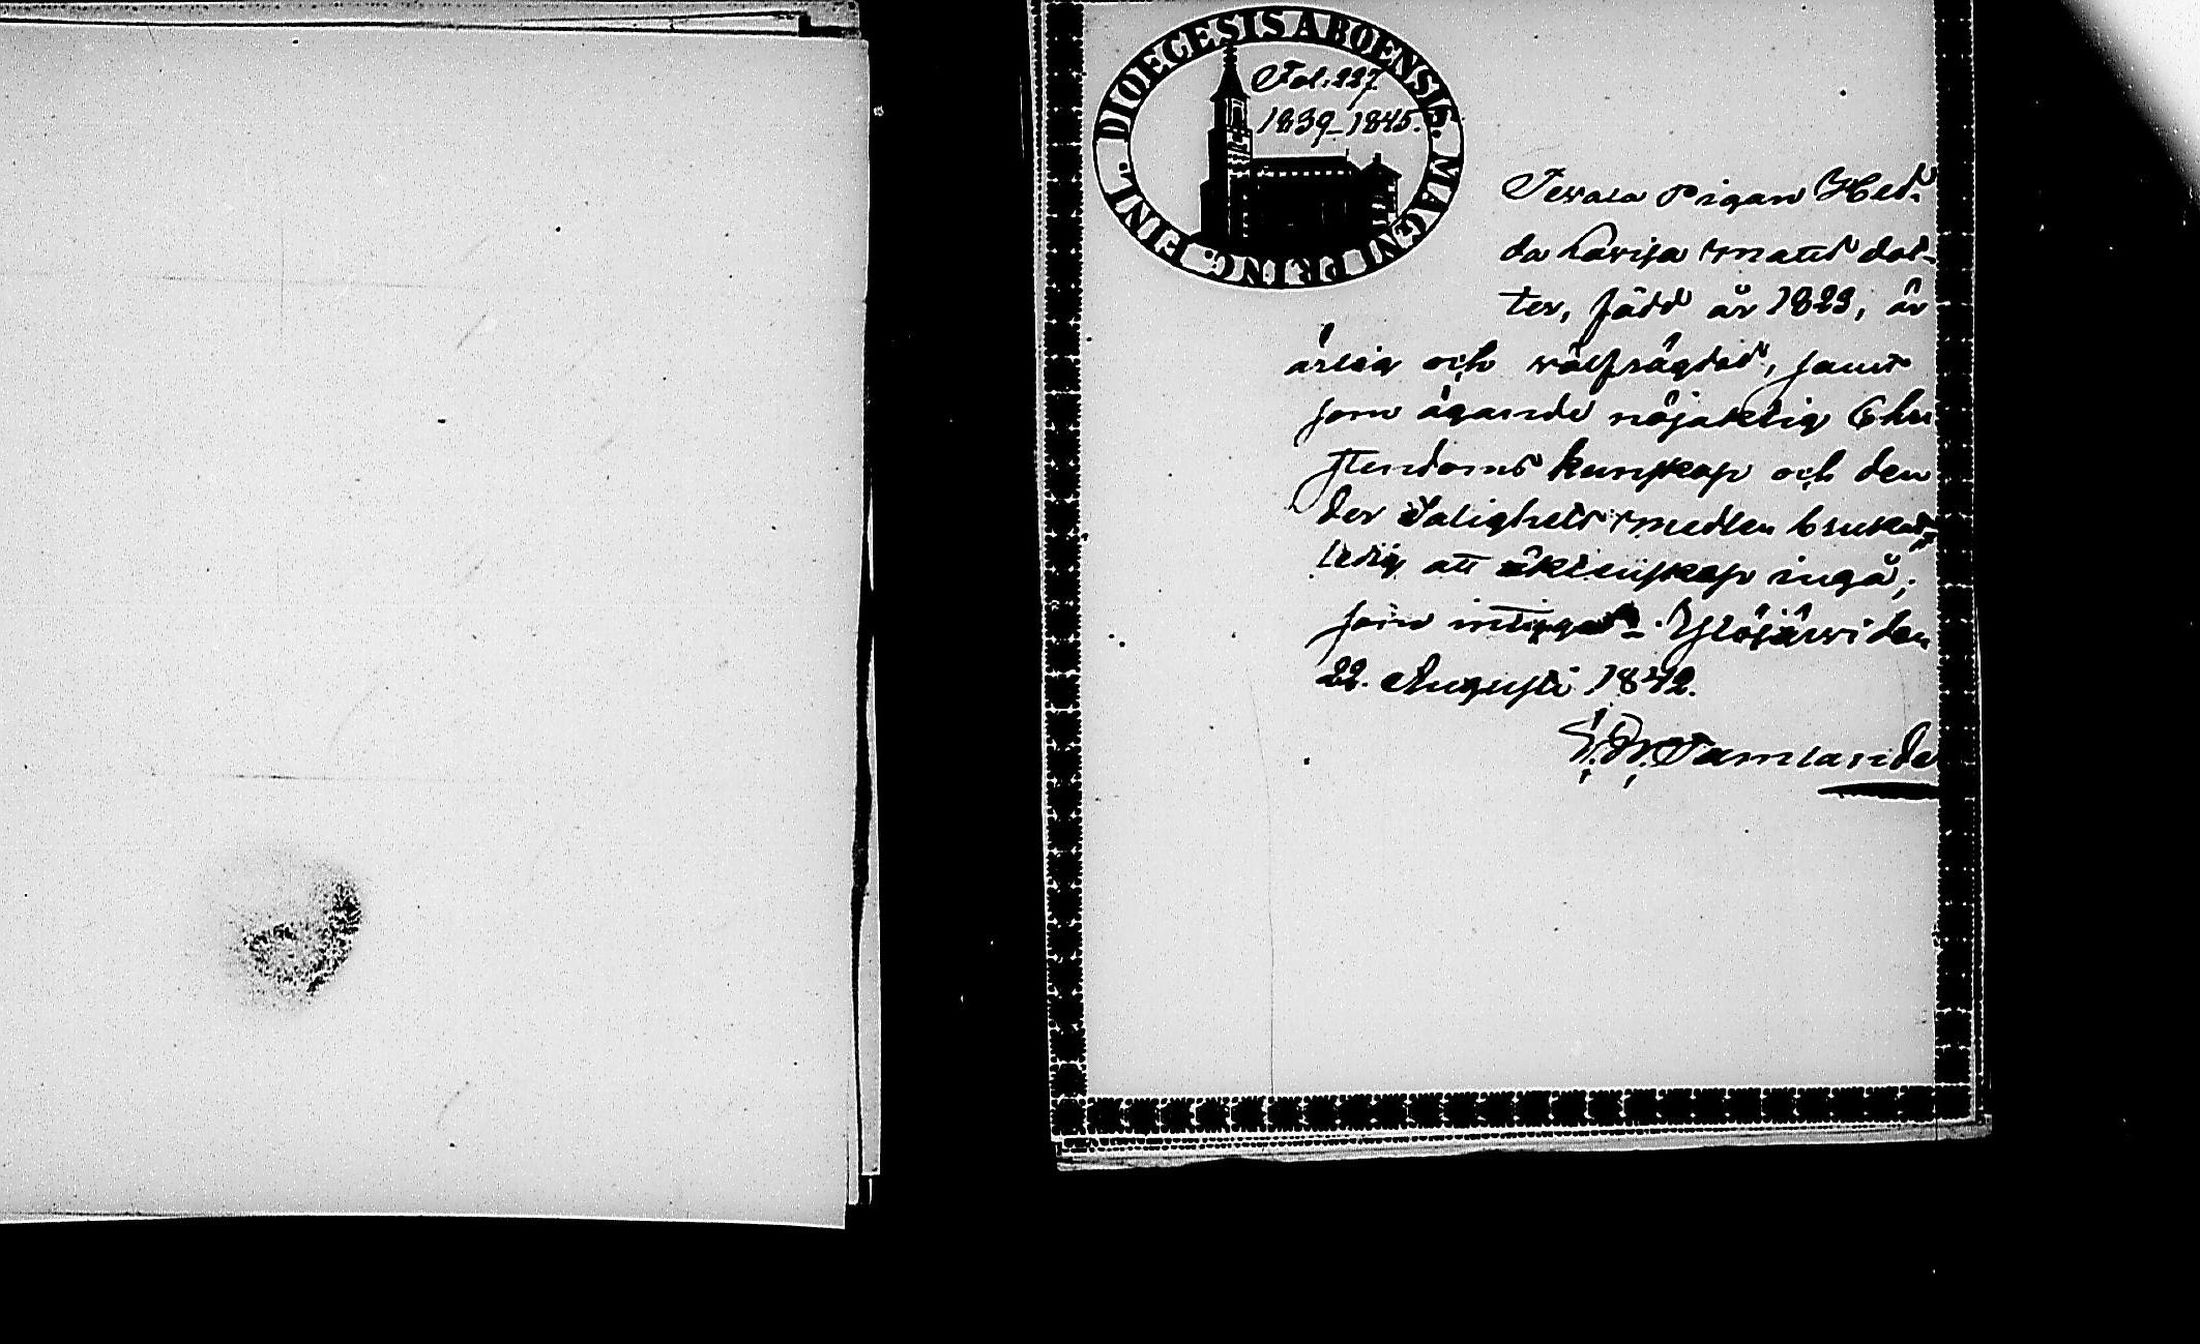 DIOECESIS ABOENSIS. MAGNI PRINC. FINL.
Fol. 227
1839–1845.
Pigan Hed-
da Lovisa Matts dot-
ter, född år 1823, är
ärlig och välfrägdad, samt
som ägande nöjaktig Chri
stendoms kunskap och den
der Salighets medlen brukat,
ledig att äktenskap ingå;
som intygat. Ylöjärvi den
22. Augusti 1842.
Tamlande